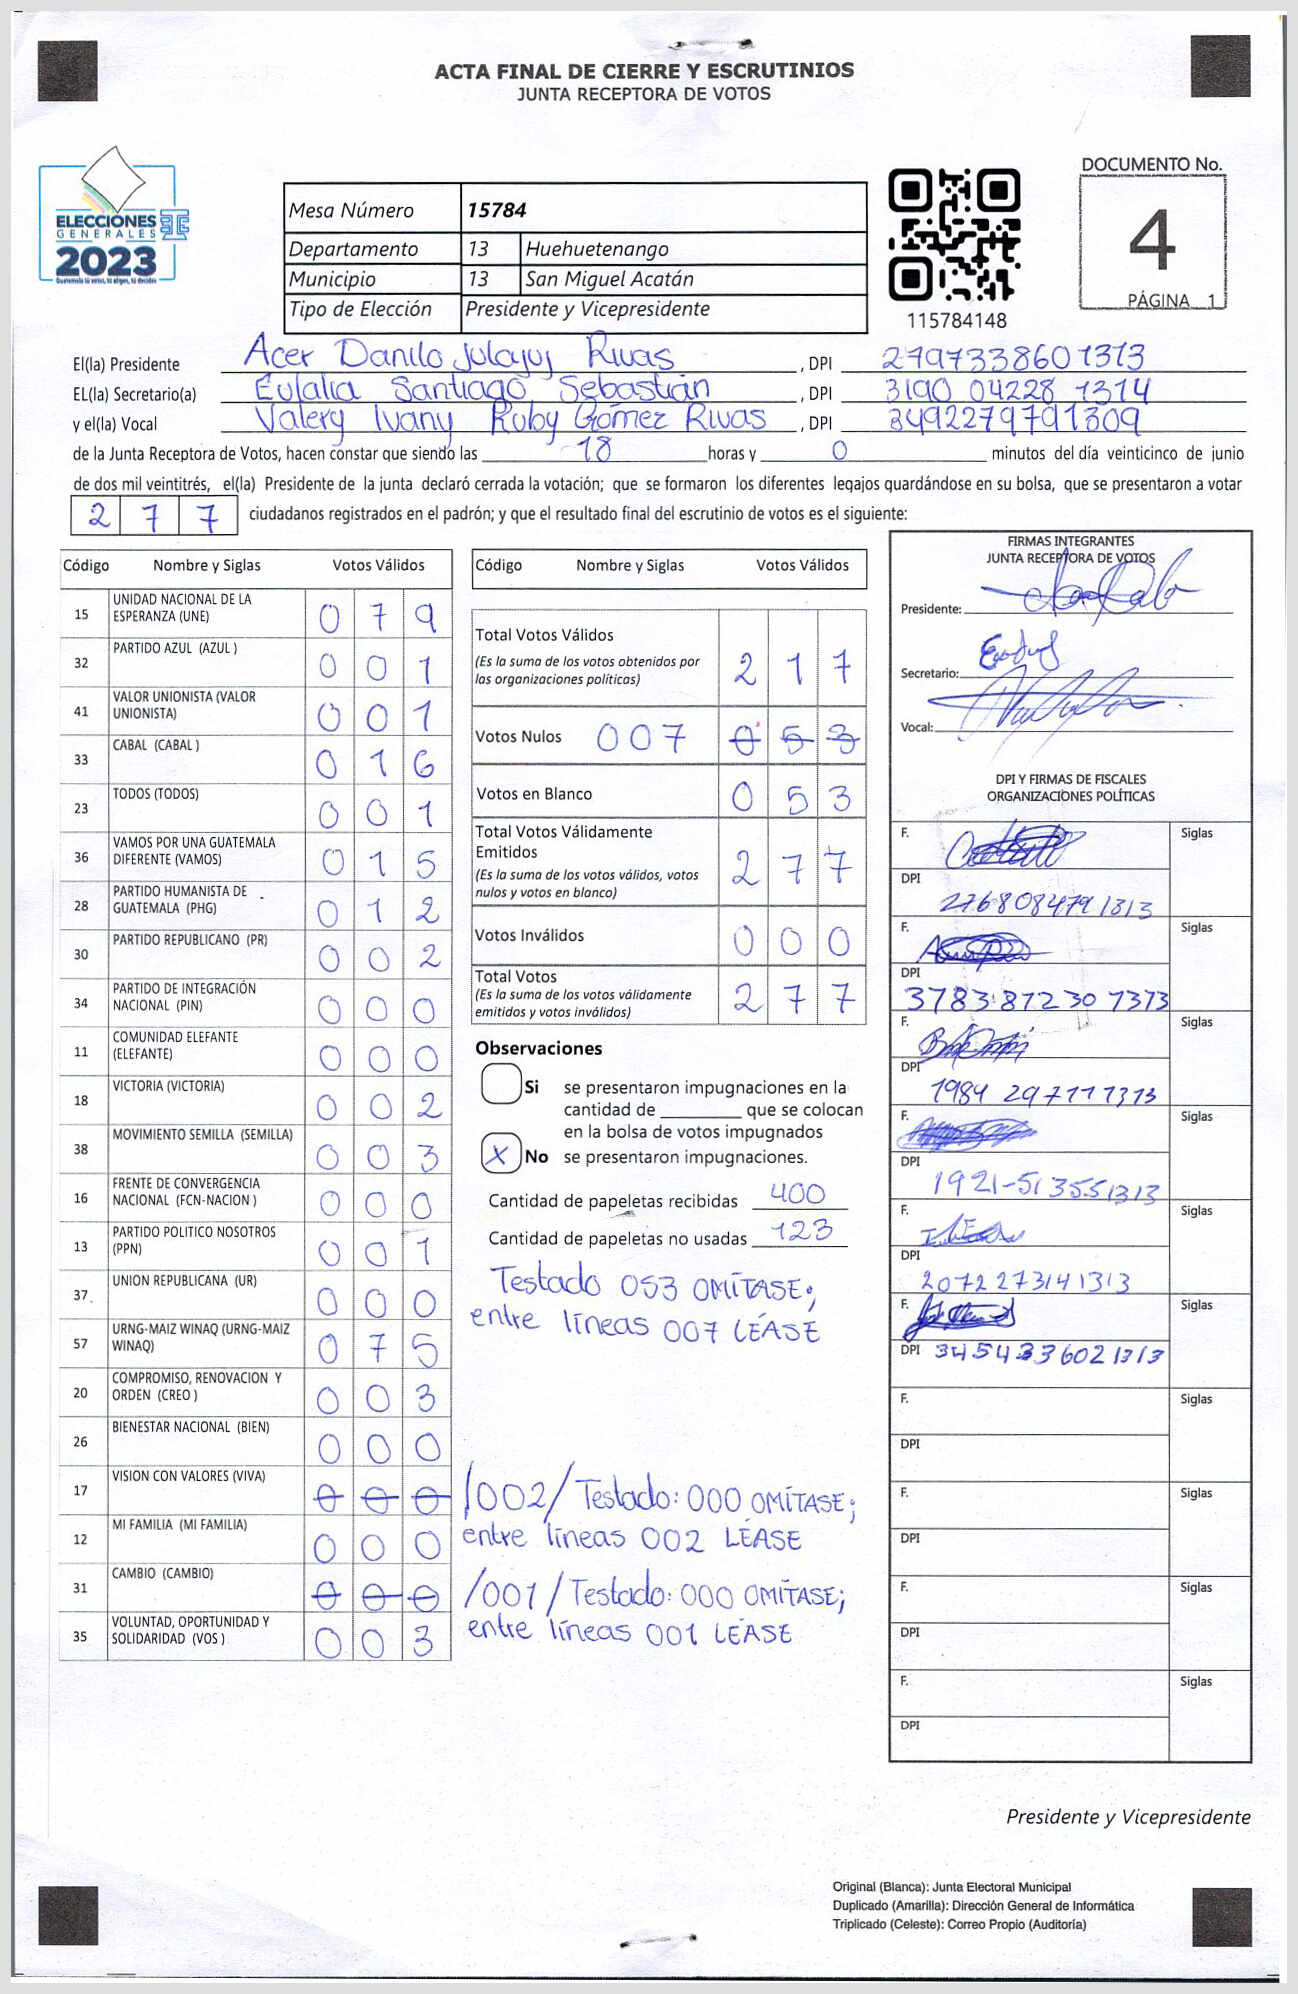 ACTA FINAL DE CIERRE Y ESCRUTINIOS
JUNTA RECEPTORA DE VOTOS
ELECCIONES
GENERALES
2023
Mesa Número 15784
Departamento 13 Huehuetenango
Municipio 13 San Miguel Acatán
Tipo de Elección Presidente y Vicepresidente
115784148
DOCUMENTO No.
4
PÁGINA 1
El(la) Presidente Acer Danilo Julajuj Rivas , DPI 2797338601313
EL(la) Secretario(a) Eulalia Santiago Sebastián , DPI 3190 04228 1314
y el(la) Vocal Valery Ivany Ruby Gómez Rivas , DPI 3492279791309
de la Junta Receptora de Votos, hacen constar que siendo las 18 horas y 0 minutos del día veinticinco de junio
de dos mil veintitrés, el(la) Presidente de la junta declaró cerrada la votación; que se formaron los diferentes legajos guardándose en su bolsa, que se presentaron a votar
2 7 7 ciudadanos registrados en el padrón; y que el resultado final del escrutinio de votos es el siguiente:
Código Nombre y Siglas Votos Válidos
15 UNIDAD NACIONAL DE LA ESPERANZA (UNE) 0 7 9
32 PARTIDO AZUL (AZUL ) 0 0 1
41 VALOR UNIONISTA (VALOR UNIONISTA) 0 0 1
33 CABAL (CABAL ) 0 1 6
23 TODOS (TODOS) 0 0 1
36 VAMOS POR UNA GUATEMALA DIFERENTE (VAMOS) 0 1 5
28 PARTIDO HUMANISTA DE GUATEMALA (PHG) 0 1 2
30 PARTIDO REPUBLICANO (PR) 0 0 2
34 PARTIDO DE INTEGRACIÓN NACIONAL (PIN) 0 0 0
11 COMUNIDAD ELEFANTE (ELEFANTE) 0 0 0
18 VICTORIA (VICTORIA) 0 0 2
38 MOVIMIENTO SEMILLA (SEMILLA) 0 0 3
16 FRENTE DE CONVERGENCIA NACIONAL (FCN-NACION ) 0 0 0
13 PARTIDO POLITICO NOSOTROS (PPN) 0 0 1
37 UNION REPUBLICANA (UR) 0 0 0
57 URNG-MAIZ WINAQ (URNG-MAIZ WINAQ) 0 7 5
20 COMPROMISO, RENOVACION Y ORDEN (CREO ) 0 0 3
26 BIENESTAR NACIONAL (BIEN) 0 0 0
17 VISION CON VALORES (VIVA) 0 0 0 /002/ Testado: 000 OMÍTASE;
entre líneas 002 LÉASE
12 MI FAMILIA (MI FAMILIA) 0 0 0
31 CAMBIO (CAMBIO) 0 0 0 /001/ Testado: 000 OMÍTASE;
entre líneas 001 LÉASE
35 VOLUNTAD, OPORTUNIDAD Y SOLIDARIDAD (VOS ) 0 0 3
Código Nombre y Siglas Votos Válidos
Total Votos Válidos 2 1 7
(Es la suma de los votos obtenidos por
las organizaciones políticas)
Votos Nulos 007 0 5 3
Votos en Blanco 0 5 3
Total Votos Válidamente
Emitidos 2 7 7
(Es la suma de los votos válidos, votos
nulos y votos en blanco)
Votos Inválidos 0 0 0
Total Votos 2 7 7
(Es la suma de los votos válidamente
emitidos y votos inválidos)
Observaciones
Si se presentaron impugnaciones en la
cantidad de ________ que se colocan
en la bolsa de votos impugnados
X No se presentaron impugnaciones.
Cantidad de papeletas recibidas 400
Cantidad de papeletas no usadas 123
Testado 053 OMÍTASE;
entre líneas 007 LÉASE
FIRMAS INTEGRANTES
JUNTA RECEPTORA DE VOTOS
Presidente:
Secretario:
Vocal:
DPI Y FIRMAS DE FISCALES
ORGANIZACIONES POLÍTICAS
F. Siglas
DPI 2768084791313
F. Siglas
DPI 3783872307373
F. Siglas
DPI 1984 297111313
F. Siglas
DPI 1921-513551313
F. Siglas
DPI 2072273141313
F. Siglas
DPI 3454336021313
F. Siglas
DPI
F. Siglas
DPI
F. Siglas
DPI
F. Siglas
DPI
Presidente y Vicepresidente
Original (Blanca): Junta Electoral Municipal
Duplicado (Amarilla): Dirección General de Informática
Triplicado (Celeste): Correo Propio (Auditoría)